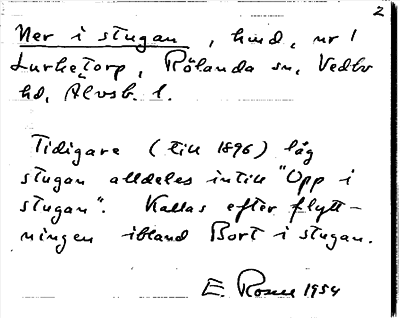 2
Ner i stugan, hmd, nr 1
Lurketorp, Rölanda sn, Vedbo
hd, Älvsb. l.
Tidigare (till 1896) låg
stugan alldeles intill "Opp i
stugan". Kallas efter flytt-
ningen ibland Bort i stugan.
E. Rosell 1954